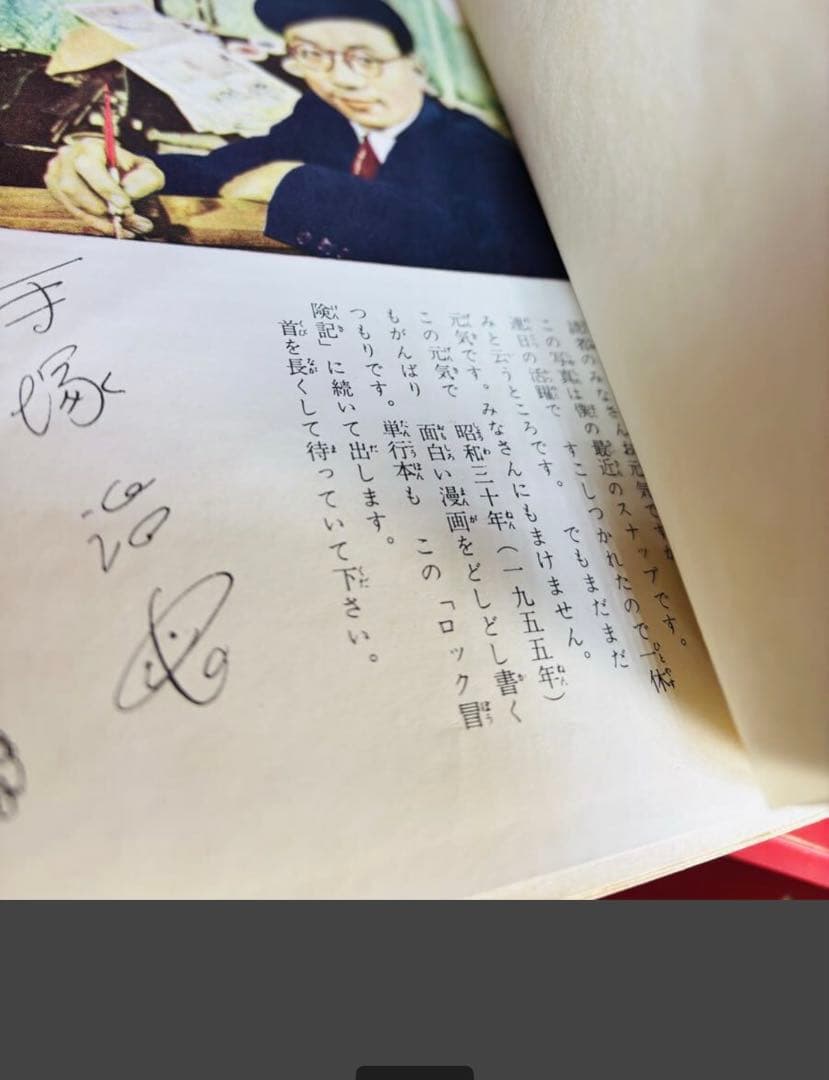 読者のみなさんお元気ですか
この写真は僕の最近のスナップです。
連日の活躍で すこしつかれたので一休
みと云うところです。 でもまだまだ
元気です。みなさんにもまけません。
この元気で 昭和三十年(一九五五年)
もがんばり 面白い漫画をどしどし書く
つもりです。 單行本も この「ロック冒
険記」に続いて出します。
首を長くして待っていて下さい。
手塚治虫